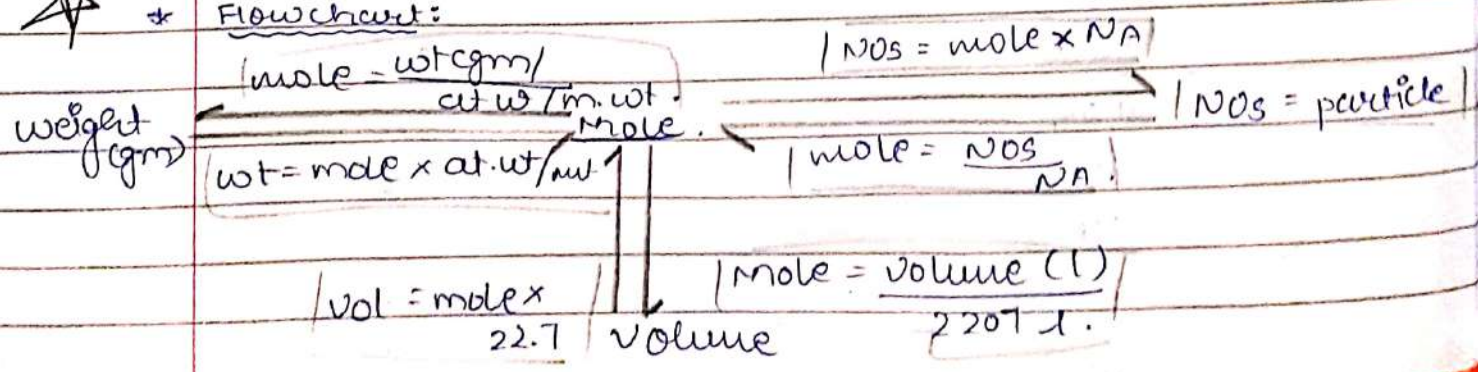 * Flowchart:
mole = wt(gm)/at w/m.wt.
NOS = mole x NA
weight (gm)
Mole.
NOS = particle
wt = mole x at.wt/mwt
mole = NOS/NA.
vol = mole x 22.7
mole = volume (l)/2207 l.
Volume